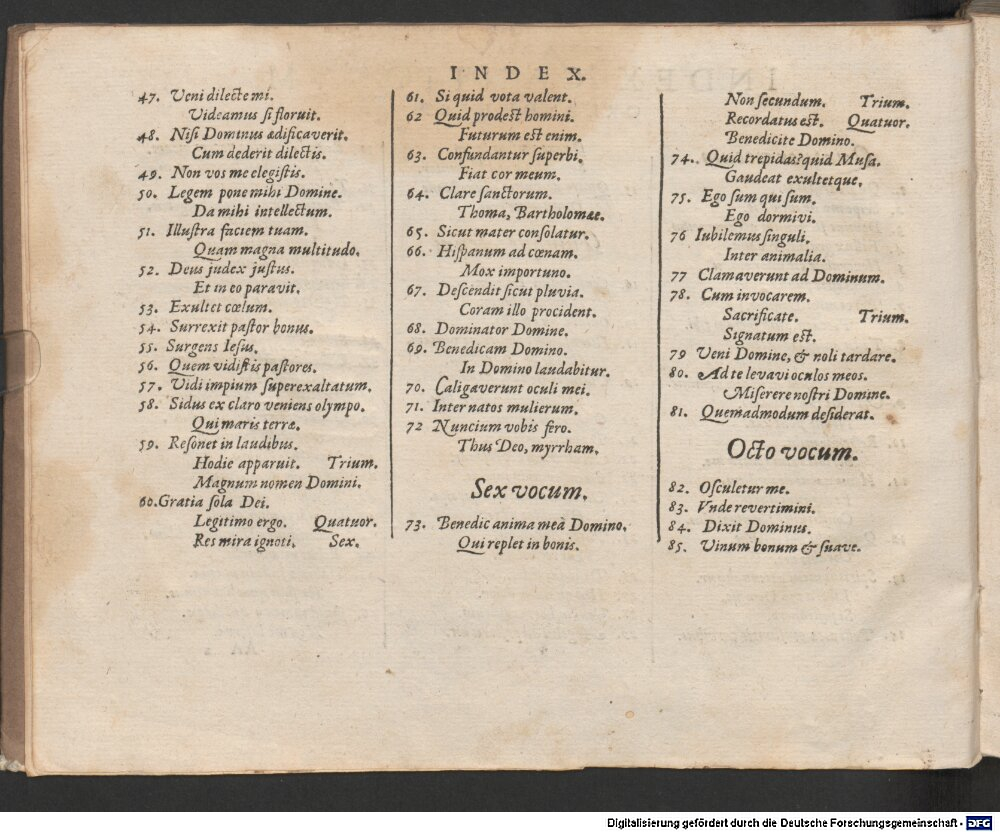 INDEX.
47. Veni dilecte mi.
Videamus si floruit.
48. Nisi Dominus ædificaverit.
Cum dederit dilectis.
49. Non vos me elegistis.
50. Legem pone mihi Domine.
Da mihi intellectum.
51. Illustra faciem tuam.
Quam magna multitudo.
52. Deus judex justus.
Et in eo paravit.
53. Exultet cœlum.
54. Surrexit pastor bonus.
55. Surgens Iesus.
56. Quem vidistis pastores.
57. Vidi impium superexaltatum.
58. Sidus ex claro veniens olympo.
Qui maris terræ.
59. Resonet in laudibus.
Hodie apparuit. Trium.
Magnum nomen Domini.
60. Gratia sola Dei.
Legitimo ergo. Quatuor.
Res mira ignoti. Sex.
61. Si quid vota valent.
62 Quid prodest homini.
Futurum est enim.
63. Confundantur superbi.
Fiat cor meum.
64. Clare sanctorum.
Thoma, Bartholomæe.
65. Sicut mater consolatur.
66. Hispanum ad cœnam.
Mox importuno.
67. Descendit sicut pluvia.
Coram illo procident.
68. Dominator Domine.
69. Benedicam Domino.
In Domino laudabitur.
70. Caligaverunt oculi mei.
71. Inter natos mulierum.
72 Nuncium vobis fero.
Thus Deo, myrrham.
Sex vocum.
73. Benedic anima mea Domino.
Qui replet in bonis.
Non secundum. Trium.
Recordatus est. Quatuor.
Benedicite Domino.
74. Quid trepidas? quid Musa.
Gaudeat exultetque.
75. Ego sum qui sum.
Ego dormivi.
76 Iubilemus singuli.
Inter animalia.
77 Clamaverunt ad Dominum.
78. Cum invocarem.
Sacrificate. Trium.
Signatum est.
79 Veni Domine, & noli tardare.
80. Ad te levavi oculos meos.
Miserere nostri Domine.
81. Quemadmodum desiderat.
Octo vocum.
82. Osculetur me.
83. Vnde revertimini.
84. Dixit Dominus.
85. Vinum bonum & suave.
Digitalisierung gefördert durch die Deutsche Forschungsgemeinschaft - DFG